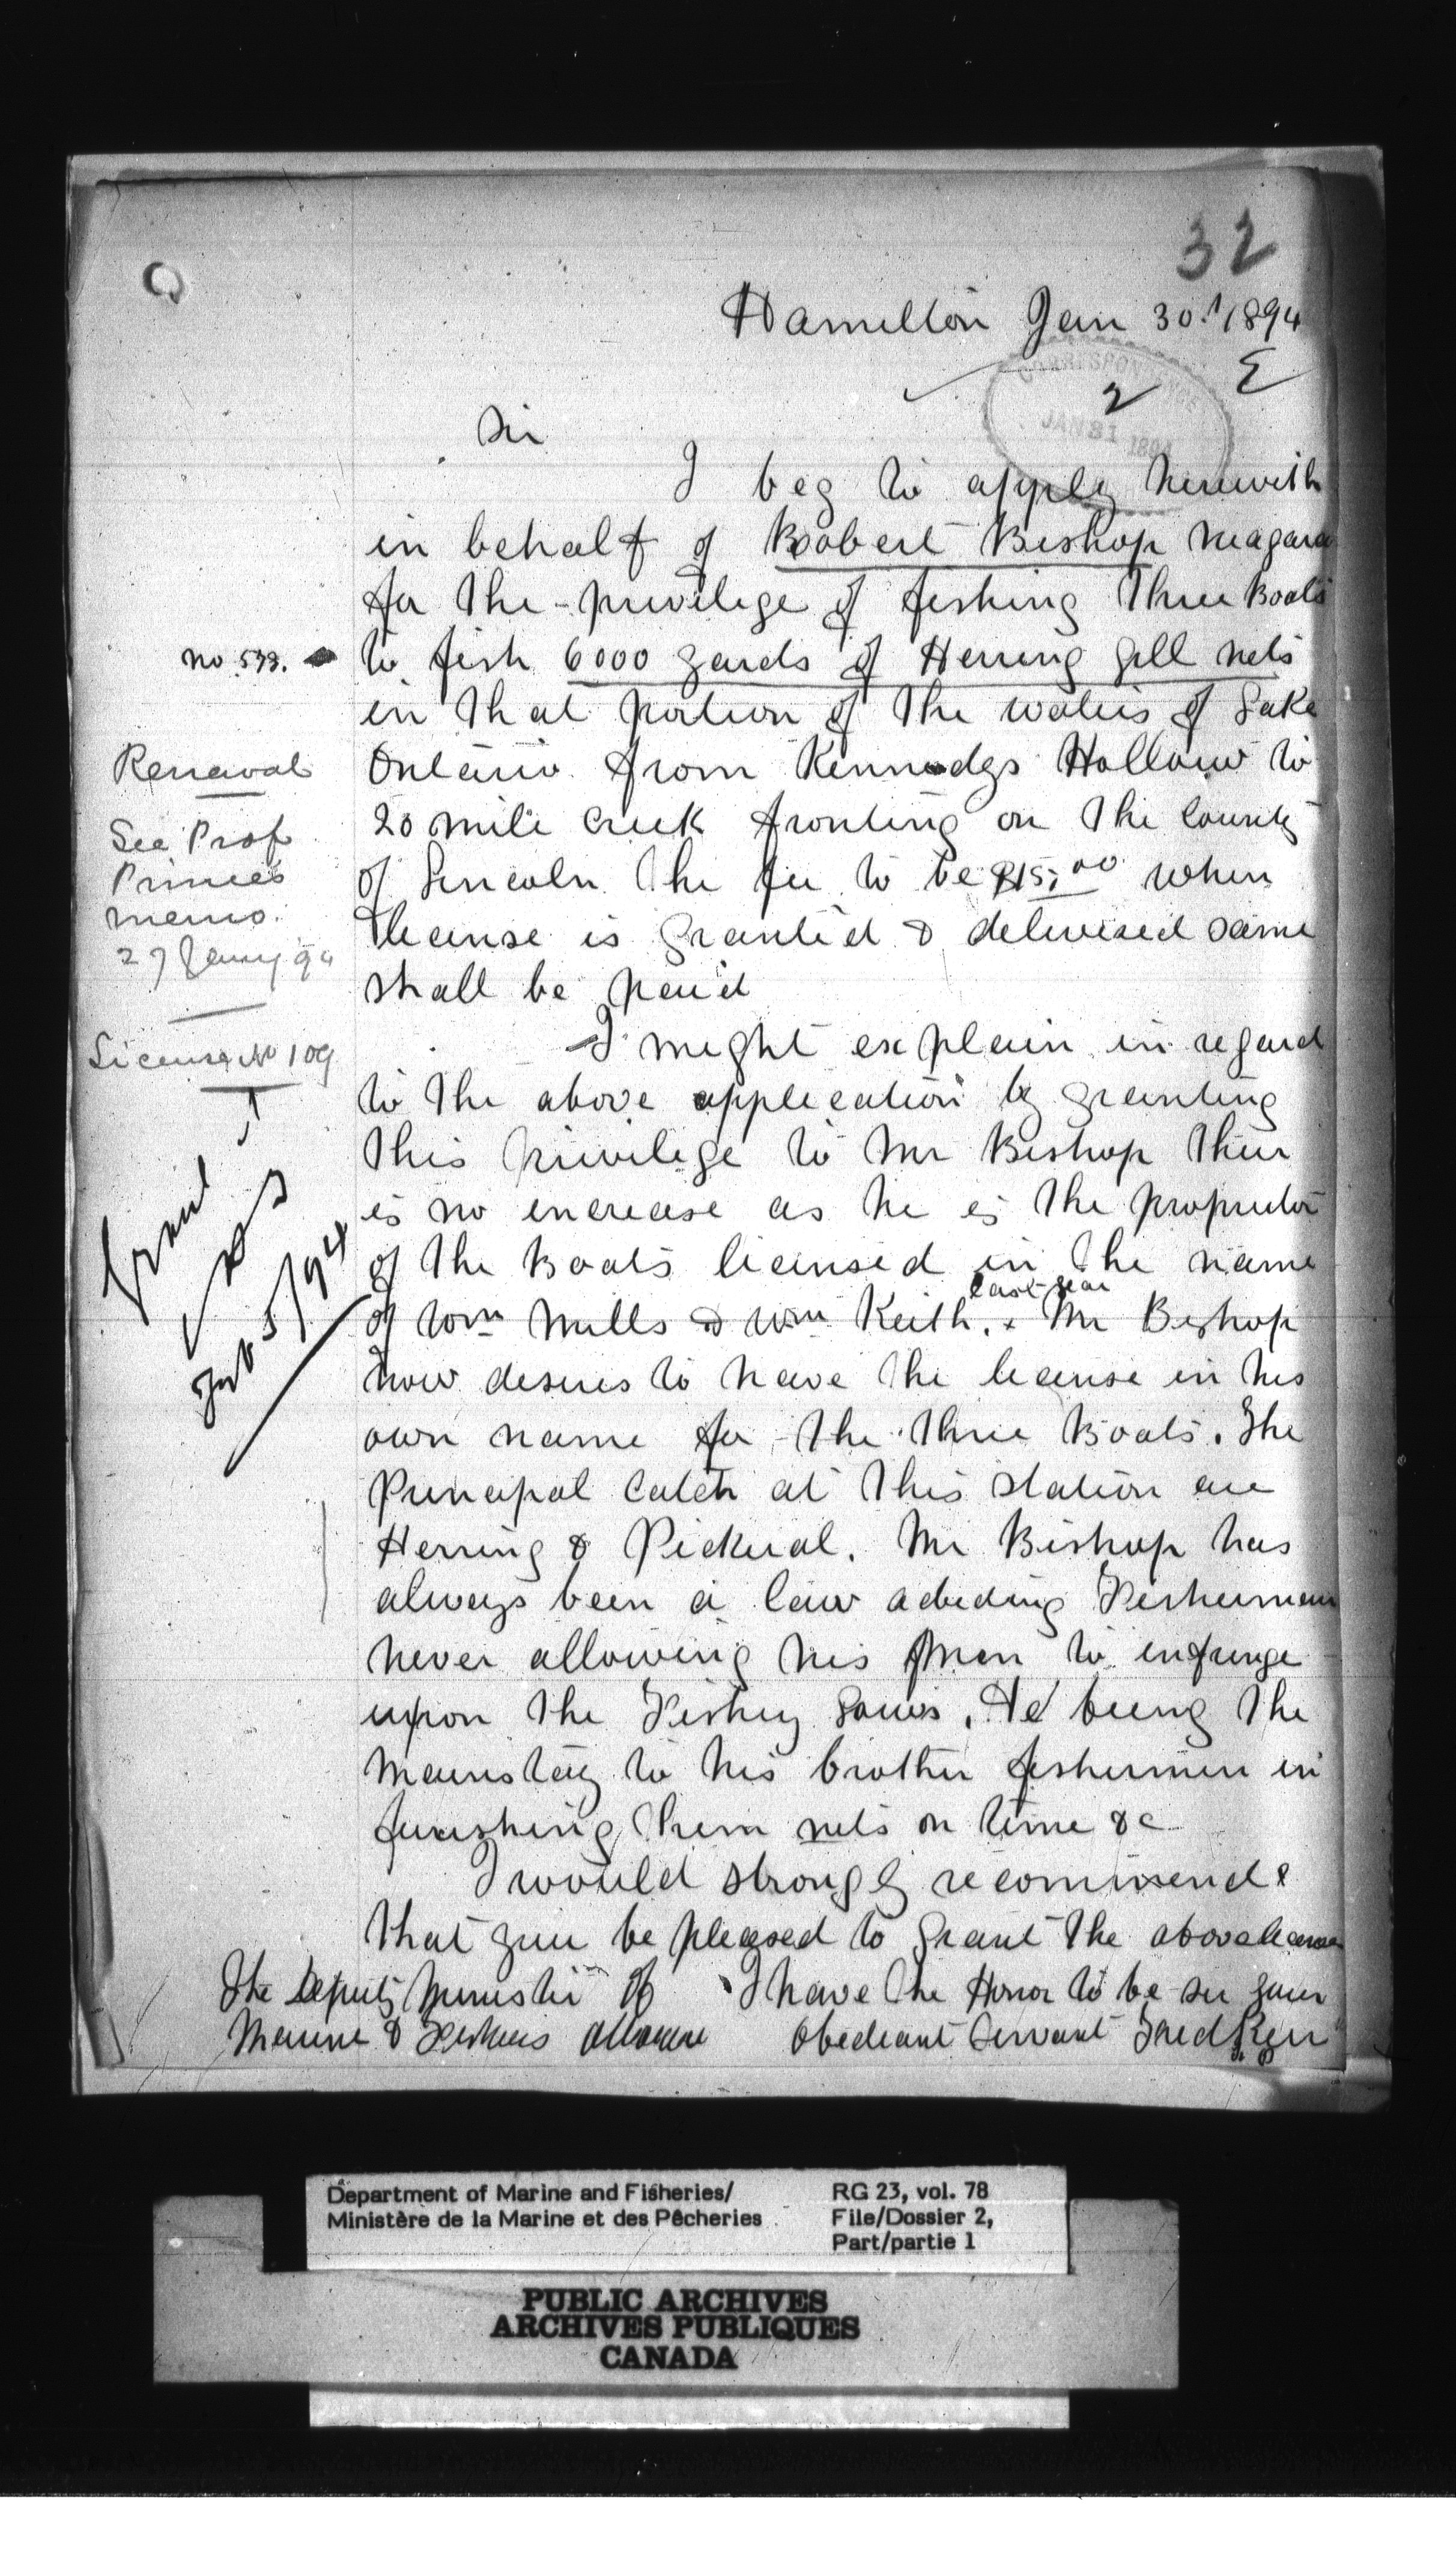 32
Hamilton Jan 30th 1894
CORRESPONDENCE
JAN 31 1894
2 E
Sir
I beg to apply herewith
in behalf of Roobert Bishop Niagara
for the privilege of fishing three Boats
no 533. to fish 6000 yards of Herring Gill nets
in that portion of the waters of Lake
Ontario from Kennedys Hollow to
20 mile Creek fronting on the County
of Lincoln the fee to be $15.00 when
license is granted & delivered same
shall be paid
I might explain in regard
to the above application by granting
this privilege to Mr Bishop their
is no increase as he is the proprietor
of the Boats licensed in the name
last year
of Wm Mills & Wm Keith. x Mr Bishop
now desires to have the license in his
own name for the three Boats. The
Principal Catch at this station are
Herring & Pickeral. Mr Bishop has
always been a law abeding Fisherman
never allowing his men to infringe
upon the Fishery Laws. He being the
mainstay to his brother fishermen in
furnishing them nets on time &c
I would strongly recommend
that you be pleased to grant the above license
I have the Honor to be sir your
Obedeant Servant Fred Kerr
The Deputy Minister of
Marine & Fisheries Ottawa
Renewal
See Prof
Prince's
memo.
27 Jany 94
License No 109
Grant
Feb 5/94
Department of Marine and Fisheries/
Ministère de la Marine et des Pêcheries
RG 23, vol. 78
File/Dossier 2,
Part/partie 1
PUBLIC ARCHIVES
ARCHIVES PUBLIQUES
CANADA